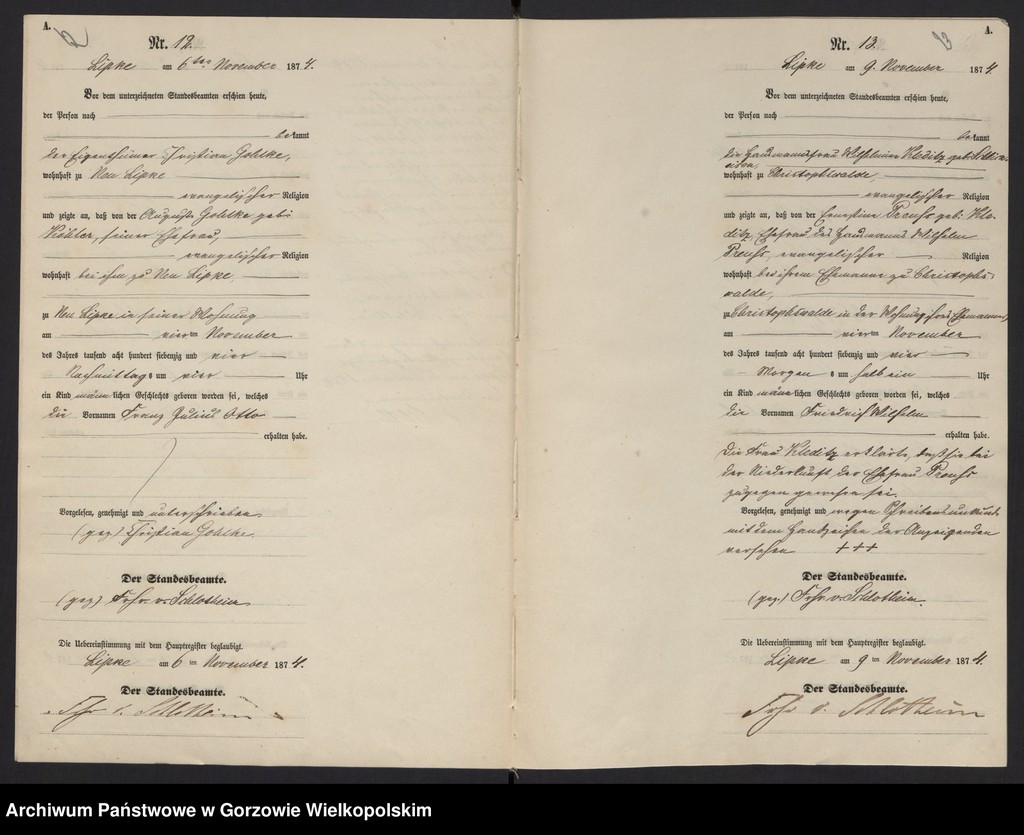 A.
Nr. 12.
Lipke am 6ten November 1874.
Vor dem unterzeichneten Standesbeamten erschien heute,
der Person nach
bekannt
der Eigenthümer Christian Gohlke,
wohnhaft zu Neu Lipke
evangelischer Religion
und zeigte an, daß von der Auguste Gohlke geb:
Köhler, seiner Ehefrau,
evangelischer Religion
wohnhaft bei ihm zu Neu Lipke
zu Neu Lipke in seiner Wohnung
am vierten November
des Jahres tausend acht hundert siebenzig und vier
Nachmittags um vier Uhr
ein Kind männlichen Geschlechts geboren worden sei, welches
die Vornamen Franz Julius Otto
erhalten habe.
Vorgelesen, genehmigt und unterschrieben
(gez) Christian Gohlke.
Der Standesbeamte.
(gez) Frhr. v. Schlotheim
Die Uebereinstimmung mit dem Hauptregister beglaubigt.
Lipke am 6ten November 1874.
Der Standesbeamte.
Frhr v. Schlotheim
A.
13
Nr. 13.
Lipke am 9. November 1874.
Vor dem unterzeichneten Standesbeamten erschien heute,
der Person nach
bekannt
die Hausmannsfrau Wilhelmine Kleditz geb:
wohnhaft zu Christophswalde,
evangelischer Religion
und zeigte an, daß von der Ernestine Preuhs geb: Kle-
ditz, Ehefrau des Hausmanns Wilhelm
Preuhs, evangelischer Religion
wohnhaft bei ihrem Ehemanne zu Christophs-
walde,
zu Christophswalde in der Wohnung ihres Ehemannes,
am vierten November
des Jahres tausend acht hundert siebenzig und vier
Morgens um halb ein Uhr
ein Kind männlichen Geschlechts geboren worden sei, welches
die Vornamen Friedrich Wilhelm
erhalten habe.
Die Frau Kleditz erklärte, daß sie bei
der Niederkunft der Ehefrau Preuhs
zugegen gewesen sei.
Vorgelesen, genehmigt und wegen Schreibensunkunde
mit dem Handzeichen der Anzeigenden
versehen +++
Der Standesbeamte.
(gez.) Frhr. v. Schlotheim.
Die Uebereinstimmung mit dem Hauptregister beglaubigt.
Lipke am 9ten November 1874.
Der Standesbeamte.
Frhr v. Schlotheim
Archiwum Państwowe w Gorzowie Wielkopolskim